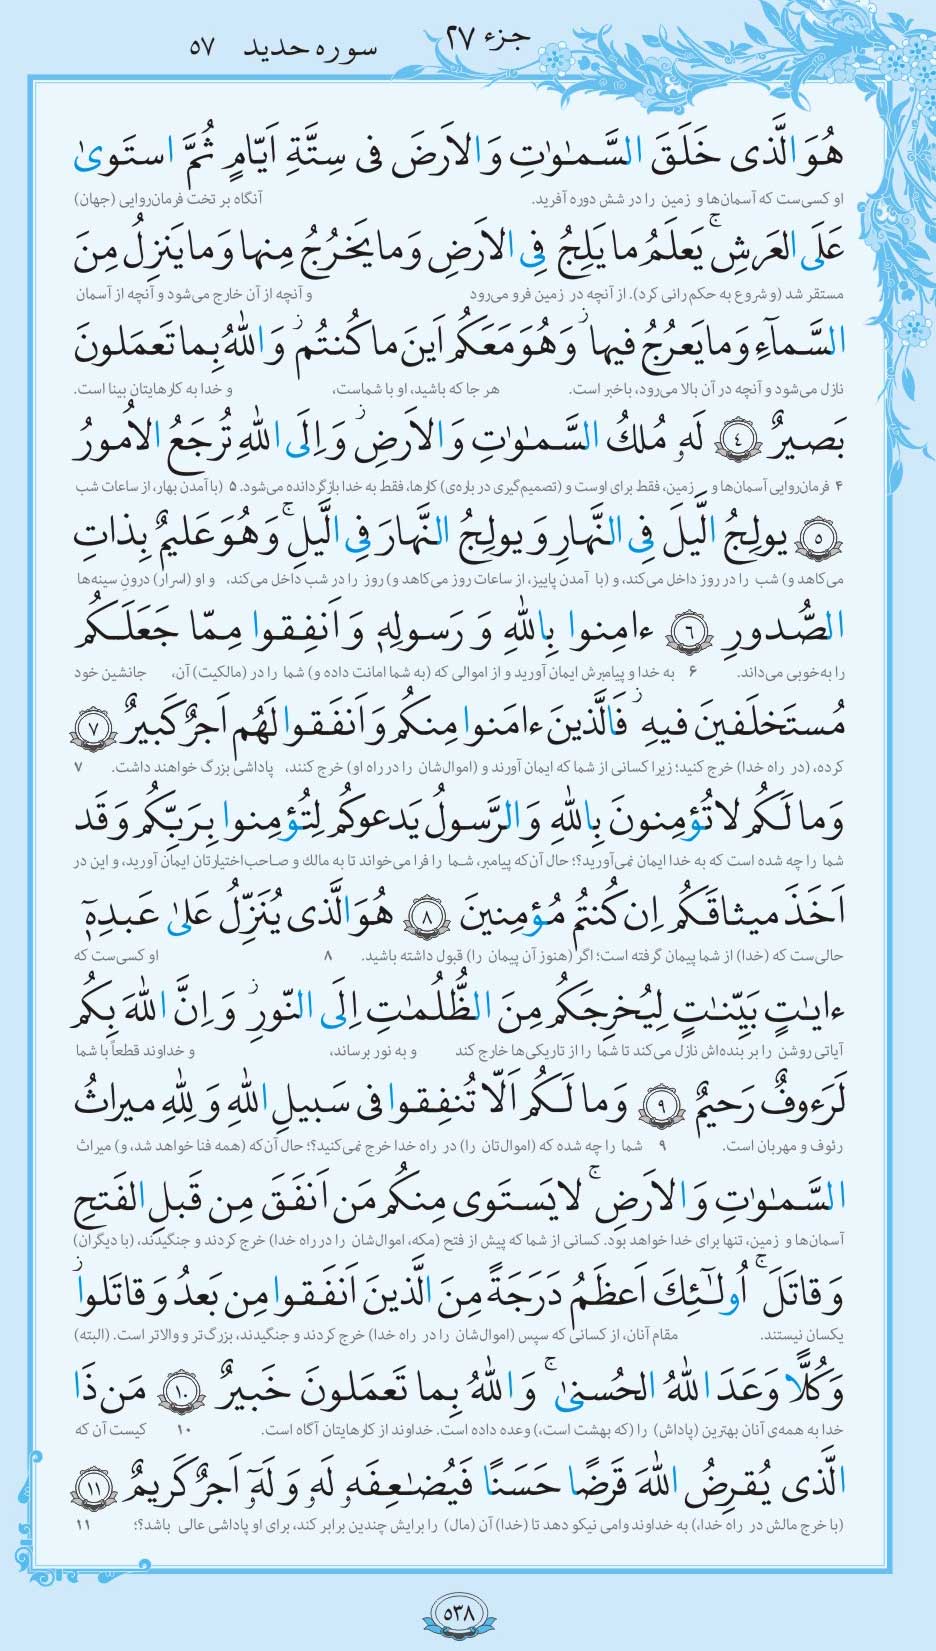 جزء ۲۷ سوره حدید ۵۷
هُوَ الَّذی خَلَقَ السَّمـٰوٰتِ وَ الاَرضَ فی سِتَّةِ اَیّامٍ ثُمَّ استَویٰ
او کسی‌ست که آسمان‌ها و زمین را در شش دوره آفرید. آنگاه بر تخت فرمان‌روایی (جهان)
عَلَی العَرشِ ۚ یَعلَمُ ما یَلِجُ فِی الاَرضِ وَ ما یَخرُجُ مِنها وَ ما یَنزِلُ مِنَ
مستقر شد (و شروع به حکم‌رانی کرد). از آنچه در زمین فرو می‌رود و آنچه از آن خارج می‌شود و آنچه از آسمان
السَّمآءِ وَ ما یَعرُجُ فیها ۖ وَ هُوَ مَعَکُم اَینَ ما کُنتُم ۚ وَ اللّٰهُ بِما تَعمَلونَ
نازل می‌شود و آنچه در آن بالا می‌رود، باخبر است. هر جا که باشید، او با شماست، و خدا به کارهایتان بینا است.
بَصیرٌ ﴿٤﴾ لَهٗ مُلکُ السَّمـٰوٰتِ وَ الاَرضِ ۚ وَ اِلَی اللّٰهِ تُرجَعُ الاُمورُ
۴ فرمان‌روایی آسمان‌ها و زمین، فقط برای اوست و (تصمیم‌گیری درباره‌ی) کارها، فقط به خدا بازگردانده می‌شود. ۵ (با آمدن بهار، از ساعات شب
﴿٥﴾ یولِجُ الَّیلَ فِی النَّهارِ وَ یولِجُ النَّهارَ فِی الَّیلِ ۚ وَ هُوَ عَلیمٌ بِذاتِ
می‌کاهد و) شب را در روز داخل می‌کند، و (با آمدن پاییز، از ساعات روز می‌کاهد و) روز را در شب داخل می‌کند، و او (اسرار) درونِ سینه‌ها
الصُّدورِ ﴿٦﴾ ءامِنوا بِاللّٰهِ وَ رَسولِهٖ وَ اَنفِقوا مِمّا جَعَلَکُم
را به‌خوبی می‌داند. ۶ به خدا و پیامبرش ایمان آورید و از اموالی که (به شما امانت داده و) شما را در (مالکیت) آن، جانشین خود
مُستَخلَفینَ فیهِ ۖ فَالَّذینَ ءامَنوا مِنکُم وَ اَنفَقوا لَهُم اَجرٌ کَبیرٌ ﴿٧﴾
کرده، (در راه خدا) خرج کنید؛ زیرا کسانی از شما که ایمان آورند و (اموال‌شان را در راه او) خرج کنند، پاداشی بزرگ خواهند داشت. ۷
وَ ما لَکُم لا تُؤمِنونَ بِاللّٰهِ وَ الرَّسولُ یَدعوکُم لِتُؤمِنوا بِرَبِّکُم وَ قَد
شما را چه شده است که به خدا ایمان نمی‌آورید؟؛ حال آن‌که پیامبر، شما را فرا می‌خواند تا به مالک و صاحب‌اختیارتان ایمان آورید، و این در
اَخَذَ میثاقَکُم اِن کُنتُم مُؤمِنینَ ﴿٨﴾ هُوَ الَّذی یُنَزِّلُ عَلیٰ عَبدِهٖٓ
حالی‌ست که (خدا) از شما پیمان گرفته است؛ اگر (هنوز آن پیمان را) قبول داشته باشید. ۸ او کسی‌ست که
ءایـٰتٍ بَیِّنـٰتٍ لِیُخرِجَکُم مِنَ الظُّلُمـٰتِ اِلَی النّورِ ۚ وَ اِنَّ اللّٰهَ بِکُم
آیاتی روشن را بر بنده‌اش نازل می‌کند تا شما را از تاریکی‌ها خارج کند و به نور برساند، و خداوند قطعاً با شما
لَرَءوفٌ رَحیمٌ ﴿٩﴾ وَ ما لَکُم اَلّا تُنفِقوا فی سَبیلِ اللّٰهِ وَ لِلّٰهِ میراثُ
رئوف و مهربان است. ۹ شما را چه شده که (اموال‌تان را) در راه خدا خرج نمی‌کنید؟؛ حال آن‌که (همه فنا خواهد شد، و) میراث
السَّمـٰوٰتِ وَ الاَرضِ ۚ لا یَستَوی مِنکُم مَن اَنفَقَ مِن قَبلِ الفَتحِ
آسمان‌ها و زمین، تنها برای خدا خواهد بود. کسانی از شما که پیش از فتح (مکه، اموال‌شان را در راه خدا) خرج کردند و جنگیدند، (با دیگران)
وَ قاتَلَ ۚ اُولـٰٓئِکَ اَعظَمُ دَرَجَةً مِنَ الَّذینَ اَنفَقوا مِن بَعدُ وَ قاتَلوا ۚ
یکسان نیستند. مقام آنان، از کسانی که سپس (اموال‌شان را در راه خدا) خرج کردند و جنگیدند، بزرگ‌تر و والاتر است. (البته)
وَ کُلًّا وَعَدَ اللّٰهُ الحُسنیٰ ۚ وَ اللّٰهُ بِما تَعمَلونَ خَبیرٌ ﴿١٠﴾ مَن ذَا
خدا به همه‌ی آنان بهترین (پاداش) را (که بهشت است،) وعده داده است. خداوند از کارهایتان آگاه است. ۱۰ کیست آن که
الَّذی یُقرِضُ اللّٰهَ قَرضًا حَسَنًا فَیُضـٰعِفَهٗ لَهٗ وَ لَهٗٓ اَجرٌ کَریمٌ ﴿١١﴾
(با خرج مالش در راه خدا،) به خداوند وامی نیکو دهد تا (خدا) آن (مال) را برایش چندین برابر کند، برای او پاداشی عالی باشد؟؛ ۱۱
۵۳۸